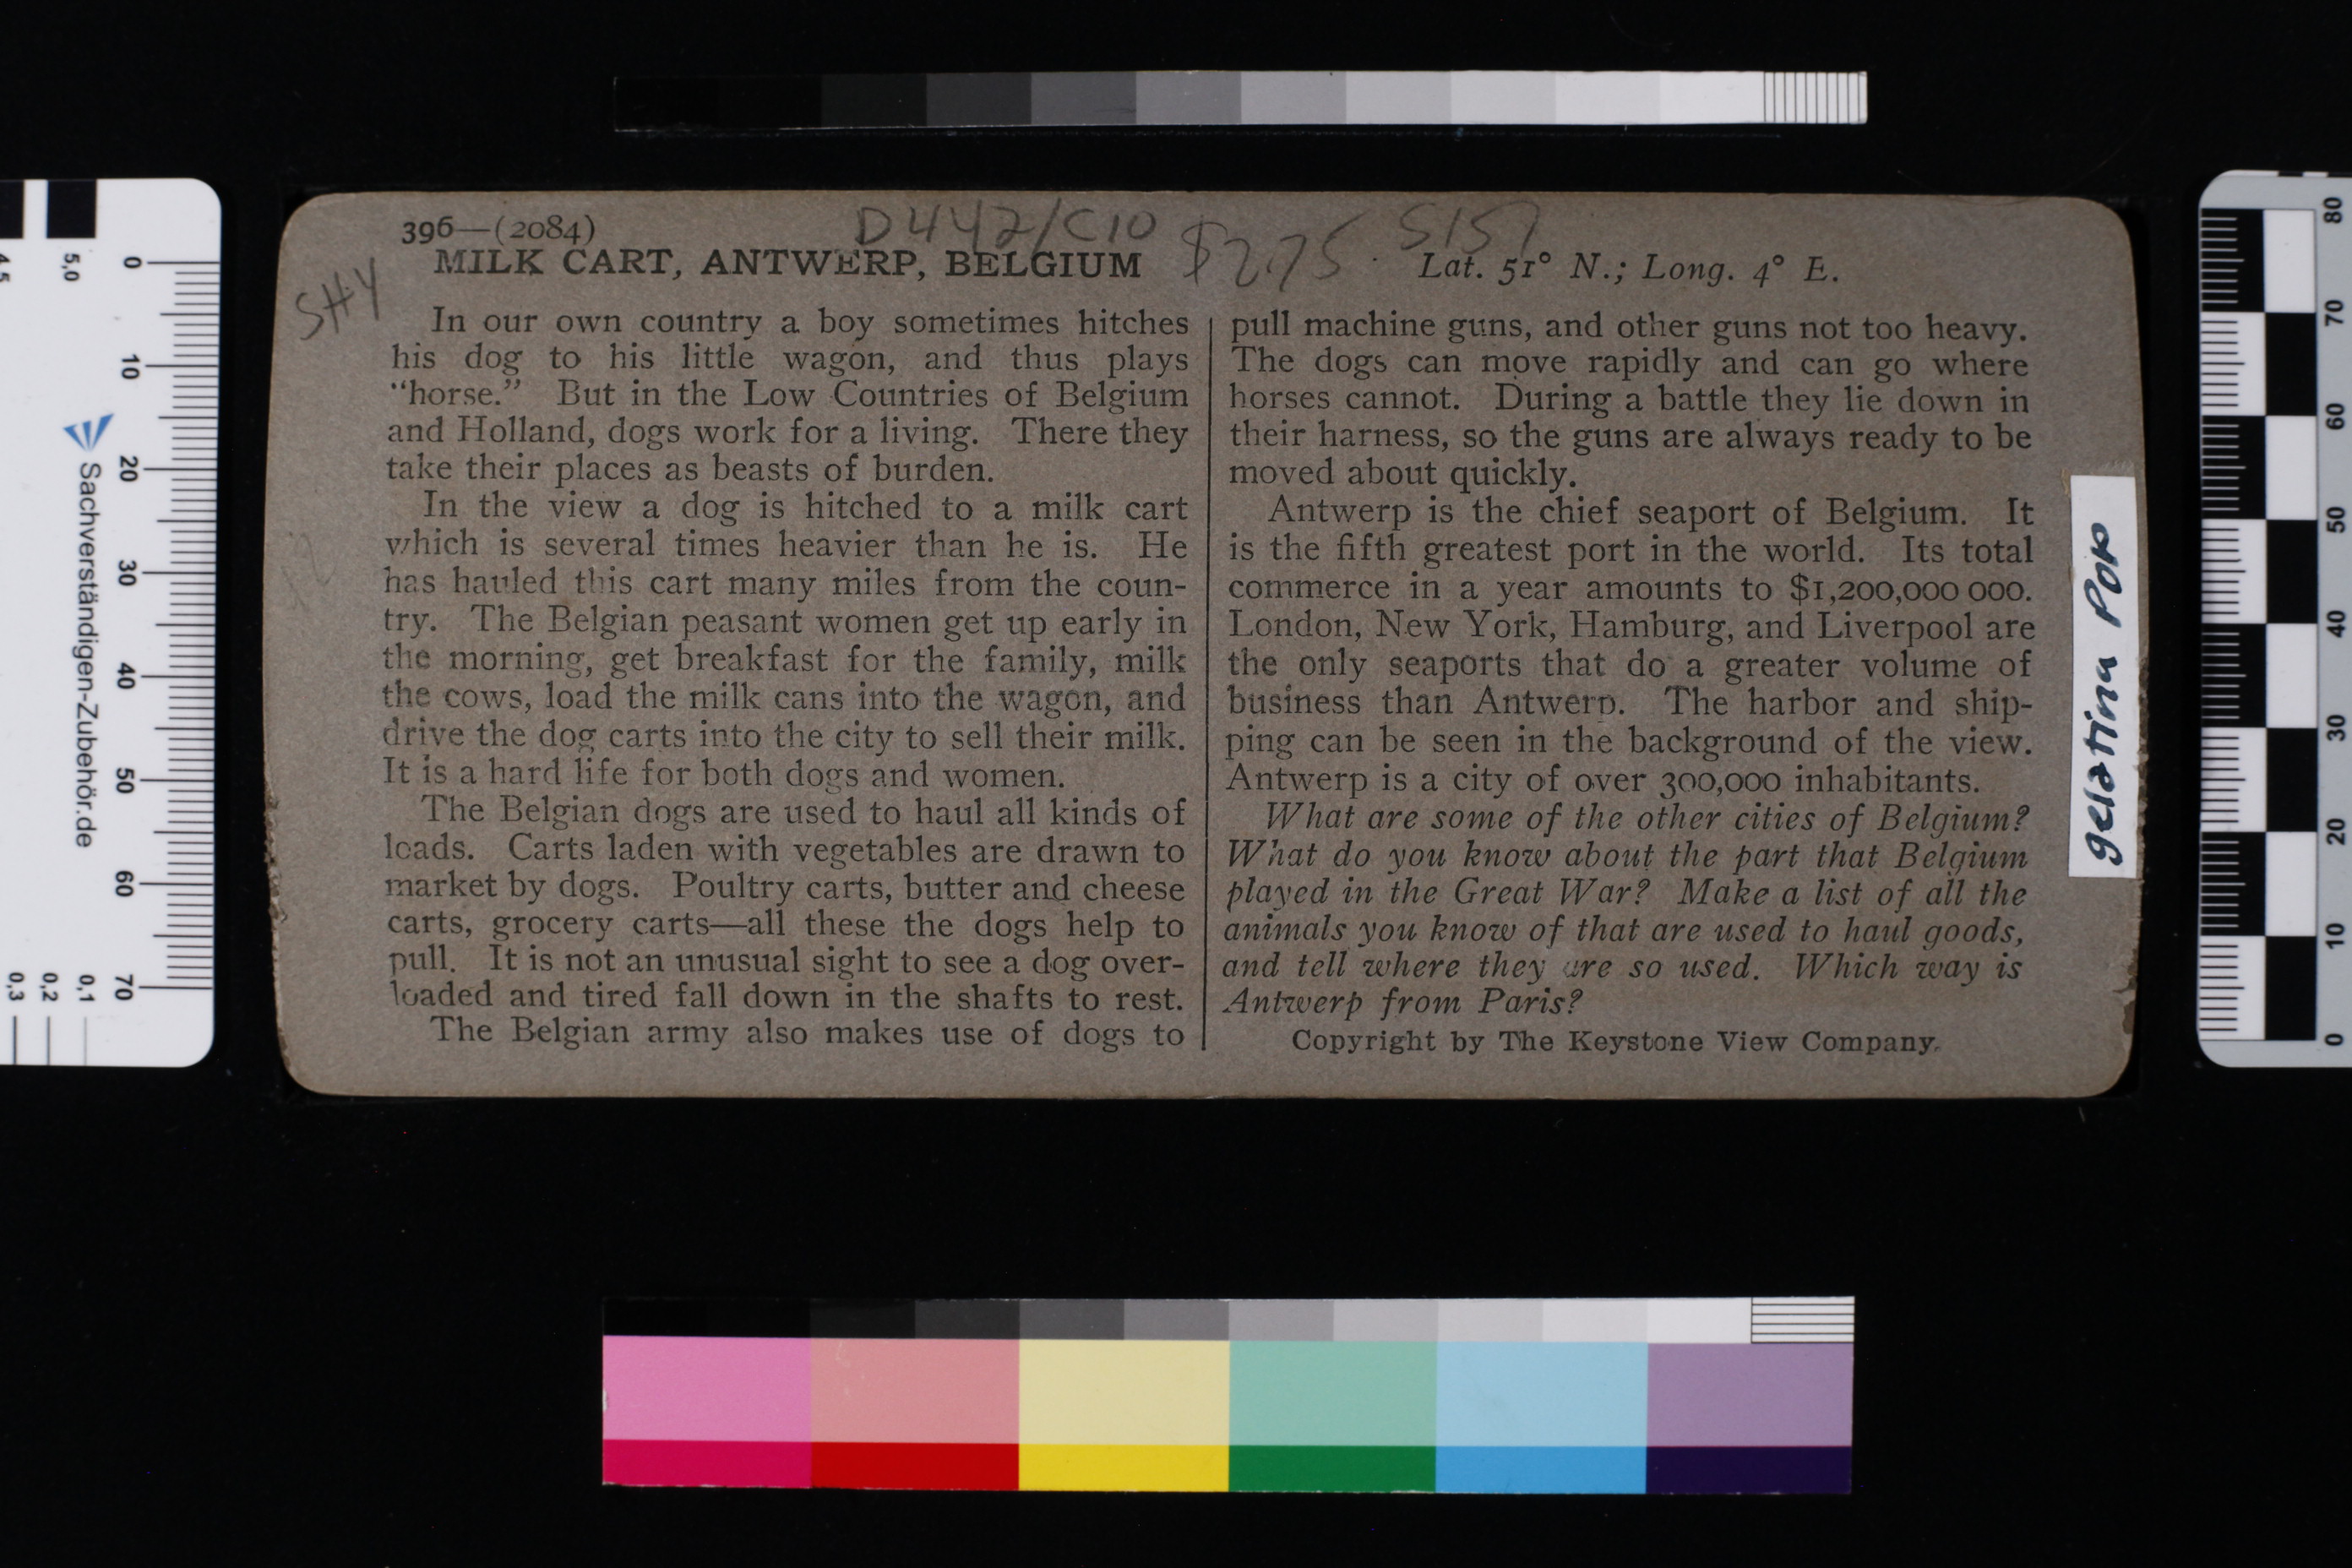 396—(2084)
D442/C10
$2.75
S157
MILK CART, ANTWERP, BELGIUM
Lat. 51° N.; Long. 4° E.
SH4
In our own country a boy sometimes hitches
his dog to his little wagon, and thus plays
“horse.” But in the Low Countries of Belgium
and Holland, dogs work for a living. There they
take their places as beasts of burden.
In the view a dog is hitched to a milk cart
which is several times heavier than he is. He
has hauled this cart many miles from the coun-
try. The Belgian peasant women get up early in
the morning, get breakfast for the family, milk
the cows, load the milk cans into the wagon, and
drive the dog carts into the city to sell their milk.
It is a hard life for both dogs and women.
The Belgian dogs are used to haul all kinds of
loads. Carts laden with vegetables are drawn to
market by dogs. Poultry carts, butter and cheese
carts, grocery carts—all these the dogs help to
pull. It is not an unusual sight to see a dog over-
loaded and tired fall down in the shafts to rest.
The Belgian army also makes use of dogs to
pull machine guns, and other guns not too heavy.
The dogs can move rapidly and can go where
horses cannot. During a battle they lie down in
their harness, so the guns are always ready to be
moved about quickly.
Antwerp is the chief seaport of Belgium. It
is the fifth greatest port in the world. Its total
commerce in a year amounts to $1,200,000 000.
London, New York, Hamburg, and Liverpool are
the only seaports that do a greater volume of
business than Antwerp. The harbor and ship-
ping can be seen in the background of the view.
Antwerp is a city of over 300,000 inhabitants.
What are some of the other cities of Belgium?
What do you know about the part that Belgium
played in the Great War? Make a list of all the
animals you know of that are used to haul goods,
and tell where they are so used. Which way is
Antwerp from Paris?
Copyright by The Keystone View Company.
gelatina POP
Sachverständigen-Zubehör.de
4,5 5,0
0 10 20 30 40 50 60 70
0,3 0,2 0,1
80 70 60 50 40 30 20 10 0